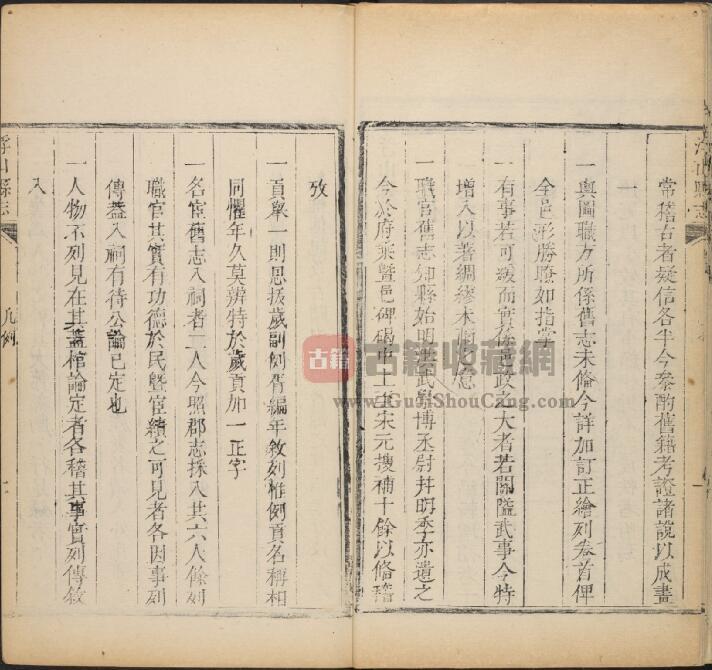 常稽古者疑信各半今叅酌舊籍考證諸說以成畫
一
一輿圖職方所係舊志未俻今詳加訂正繪列卷首俾
全邑形勝瞭如指掌
一有事若可緩而實係邑政之大者若關隘武事今特
增入以著綢繆木牖之意
一職官舊志知縣始明洪武劉博丞尉并明季亦遺之
今於府乘暨邑碑碣中上至宋元搜補十餘以俻稽
攷
一貢舉一則恩拔歲副例胥編年敘列惟例貢名稱相
同懼年久莫辨特於歲貢加一正字
一名宦舊志入祠者二人今照郡志採入共六人餘列
職官其實有功德於民暨宦績之可見者各因事列
傳葢入祠有待公論已定也
一人物不列見在其蓋棺論定者各稽其事實列傳敘
入
浮山縣志
凡例
古籍收藏網
www.GujiShouCang.com